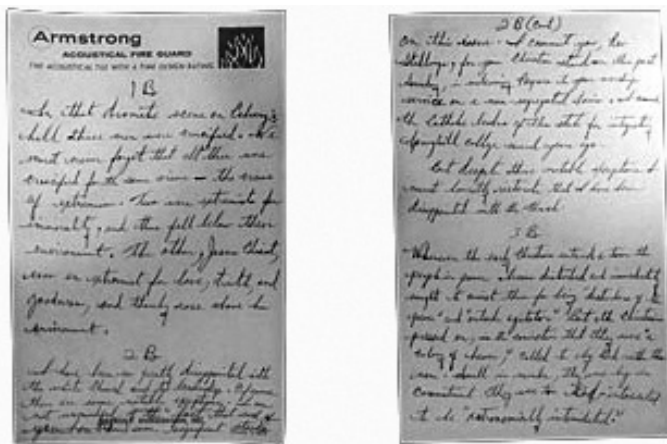 Armstrong
ACOUSTICAL FIRE GUARD
THE ACOUSTICAL TILE WITH A FIRE DESIGN RATING
1 B
In that dramatic scene on Calvary's
hill three men were crucified. We
must never forget that all three were
crucified for the same crime — the crime
of extremism. Two were extremists for
immorality, and thus fell below their
environment. The other, Jesus Christ,
was an extremist for love, truth and
goodness, and thereby rose above his
environment.
2 B
I have been so greatly disappointed with
the white church and its leadership. Of course
there are some notable exceptions. I am
not unmindful of the fact that each of
you has taken some significant stands
2 B (Cont)
on this issue. I commend you, Rev
Stallings, for your Christian stand on this past
Sunday, in welcoming Negroes to your worship
service on a non segregated basis. I commend
the Catholic leaders of this state for integrating
Springhill College several years ago.
But despite these notable exceptions I
must honestly reiterate that I have been
disappointed with the church.
3 B
Wherever the early Christians entered a town the
people in power became disturbed and immediately
sought to convict them for being "disturbers of the
peace" and "outside agitators." But the Christians
pressed on, in the conviction that they were a
"colony of heaven," called to obey God
small in number they were big in
commitment. They were too God-intoxicated
to be "astronomically intimidated."